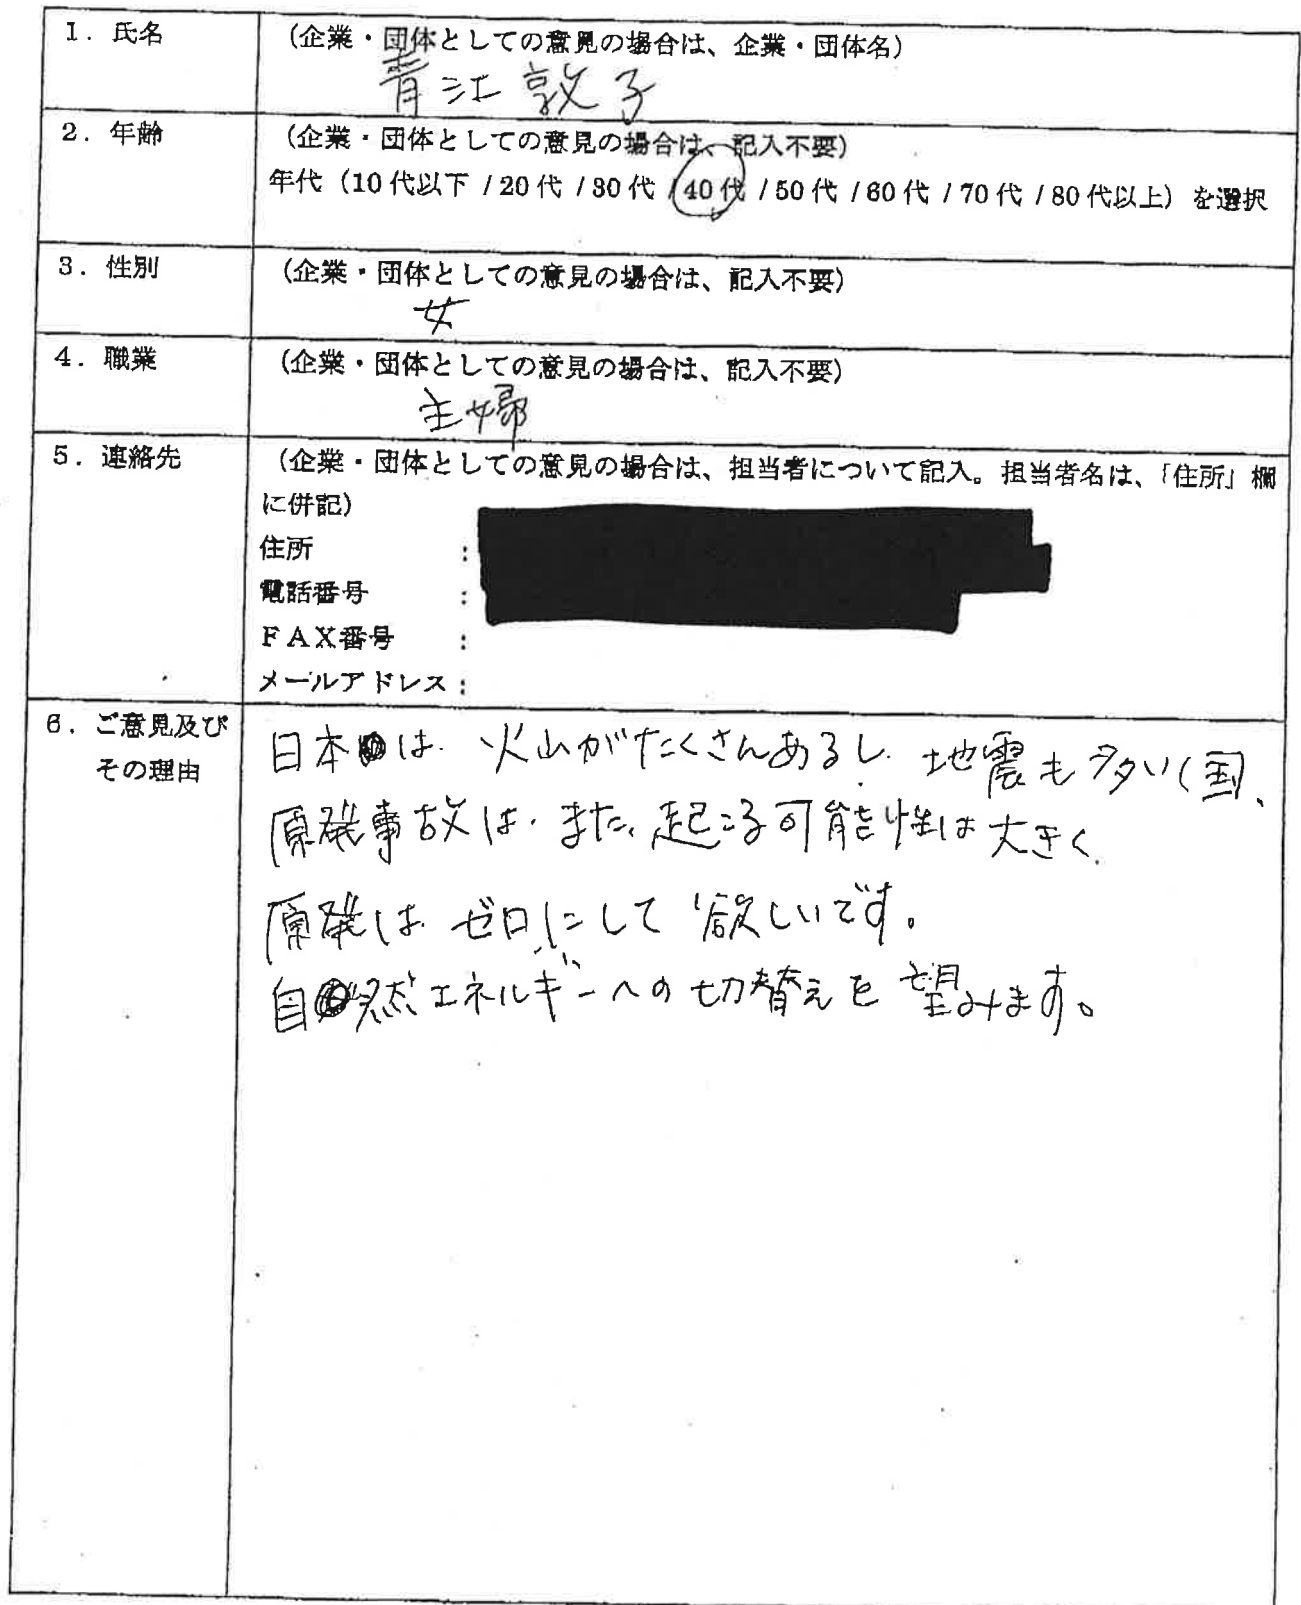 1．氏名
（企業・団体としての意見の場合は、企業・団体名）
青江敦子
2．年齢
（企業・団体としての意見の場合は、記入不要）
年代（10代以下 / 20代 / 30代 / 40代 / 50代 / 60代 / 70代 / 80代以上）を選択
3．性別
（企業・団体としての意見の場合は、記入不要）
女
4．職業
（企業・団体としての意見の場合は、記入不要）
主婦
5．連絡先
（企業・団体としての意見の場合は、担当者について記入。担当者名は、「住所」欄
に併記）
住所　　　　：
電話番号　　：
ＦＡＸ番号　：
メールアドレス：
6．ご意見及び
その理由
日本は、火山がたくさんあるし、地震も多い国、
原発事故は、また、起こる可能性は大きく、
原発は、ゼロにして欲しいです。
自然エネルギーへの切替えを望みます。